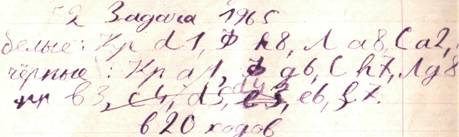 52 Задача 1965
белые: Кр d1, Ф h8, Л a8, С a2,
чёрные: Кр a1, Ф g6, С h7, Л g8
пп b3, c4, d5, d4, e3, e6, f7.
в 20 ходов